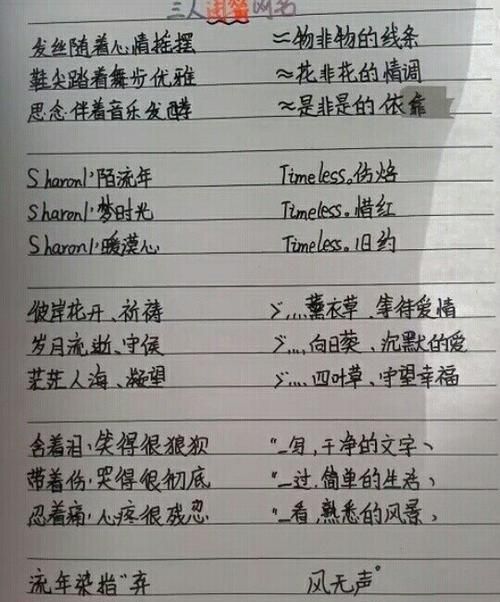 三人闺蜜网名
发丝随着心情摇摆 ≈物非物的线条
鞋尖踏着舞步优雅 ≈花非花的情调
思念伴着音乐发酵 ≈是非是的依靠
Sharonl°陌流年 Timeless。伤焰
Sharonl°梦时光 Timeless。惜红
Sharonl°暖漠心 Timeless。旧约
彼岸花开、祈祷 ゞ....薰衣草、等待爱情
岁月流逝、守侯 ゞ....向日葵、沉默的爱
茫茫人海、凝望 ゞ....四叶草、守望幸福
含着泪、笑得很狼狈 “_写,干净的文字、
带着伤、哭得很彻底 “_过,简单的生活、
忍着痛、心疼很残忍 “_看,熟悉的风景、
流年染指“弃 风无声°